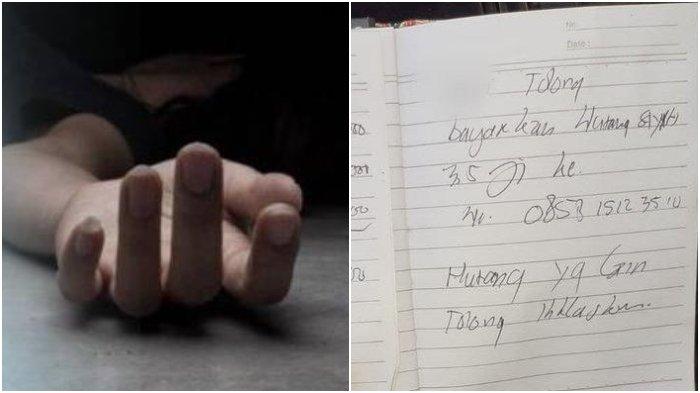 No:
Date:
Tolong
bayarkan Hutang
35 Jt ke.
No. 0853 1512 35 10
Hutang yg lain
Tolong Ikhlaskan.
50